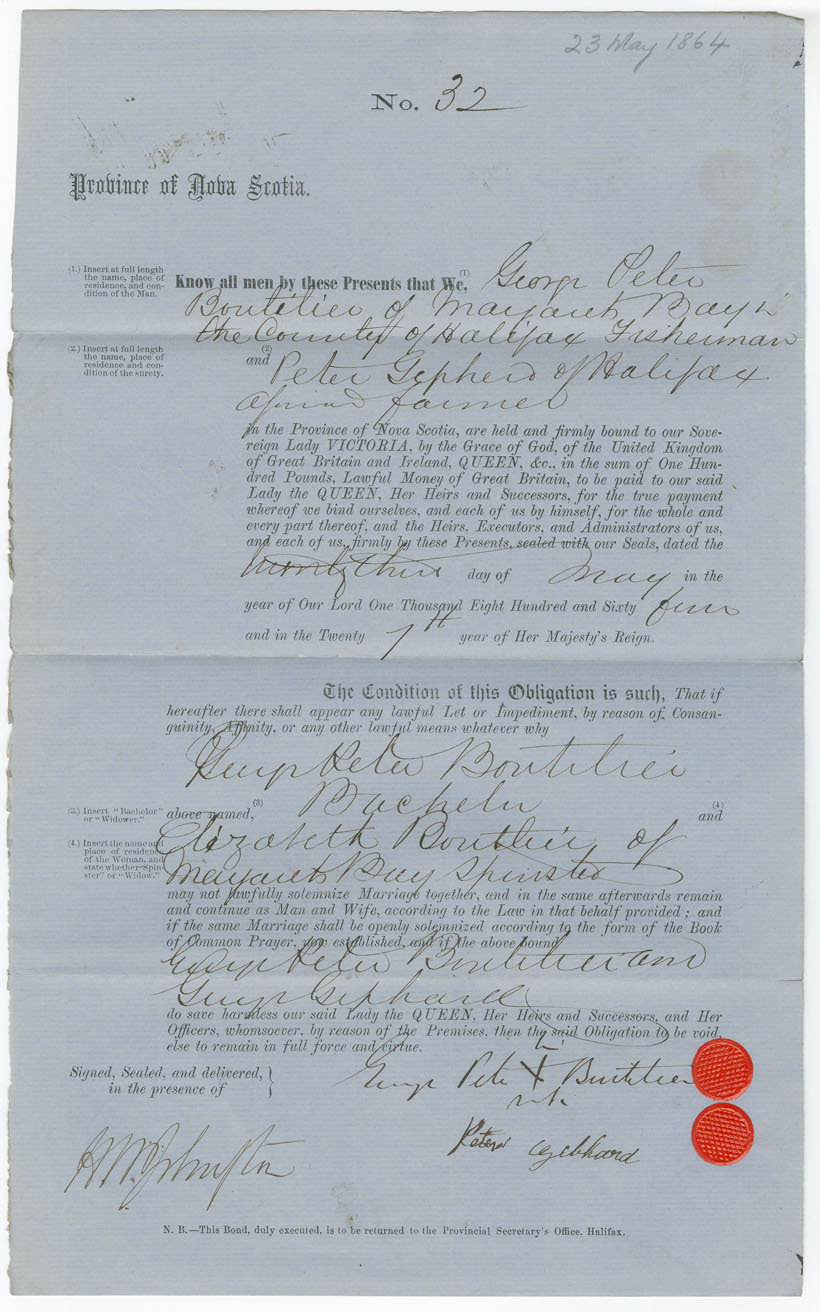 23 May 1864
No. 32
Province of Nova Scotia.
(1.) Insert at full length
the name, place of
residence, and con-
dition of the Man.
Know all men by these Presents that We, (1) George Peter
Boutilier of Margaret Bay in
the County of Halifax Fisherman
(2.) Insert at full length
the name, place of
residence and con-
dition of the surety.
and (2) Peter Gepherd of Halifax
farmer
in the Province of Nova Scotia, are held and firmly bound to our Sove-
reign Lady VICTORIA, by the Grace of God, of the United Kingdom
of Great Britain and Ireland, QUEEN, &c., in the sum of One Hun-
dred Pounds, Lawful Money of Great Britain, to be paid to our said
Lady the QUEEN, Her Heirs and Successors, for the true payment
whereof we bind ourselves, and each of us by himself, for the whole and
every part thereof, and the Heirs, Executors, and Administrators of us,
and each of us, firmly by these Presents, sealed with our Seals, dated the
twenty third day of May in the
year of Our Lord One Thousand Eight Hundred and Sixty four
and in the Twenty 7th year of Her Majesty's Reign.
The Condition of this Obligation is such, That if
hereafter there shall appear any lawful Let or Impediment, by reason of, Consan-
guinity, Affinity, or any other lawful means whatever why
George Peter Boutilier
(3.) Insert "Bachelor"
or "Widower."
above named, (3) Bachelor (4) and
(4.) Insert the name and
place of residence
of the Woman, and
state whether "Spin-
ster" or "Widow."
Elizabeth Boutilier of
Margarets Bay Spinster
may not lawfully solemnize Marriage together, and in the same afterwards remain
and continue as Man and Wife, according to the Law in that behalf provided; and
if the same Marriage shall be openly solemnized according to the form of the Book
of Common Prayer, now established, and if the above bound
George Peter Boutilier and
George Gephard
do save harmless our said Lady the QUEEN, Her Heirs and Successors, and Her
Officers, whomsoever, by reason of the Premises, then the said Obligation to be void,
else to remain in full force and virtue.
Signed, Sealed, and delivered,
in the presence of
George Peter X Boutilier
mk
Peter Gebhard
J W Johnston
N. B.—This Bond, duly executed, is to be returned to the Provincial Secretary's Office, Halifax.